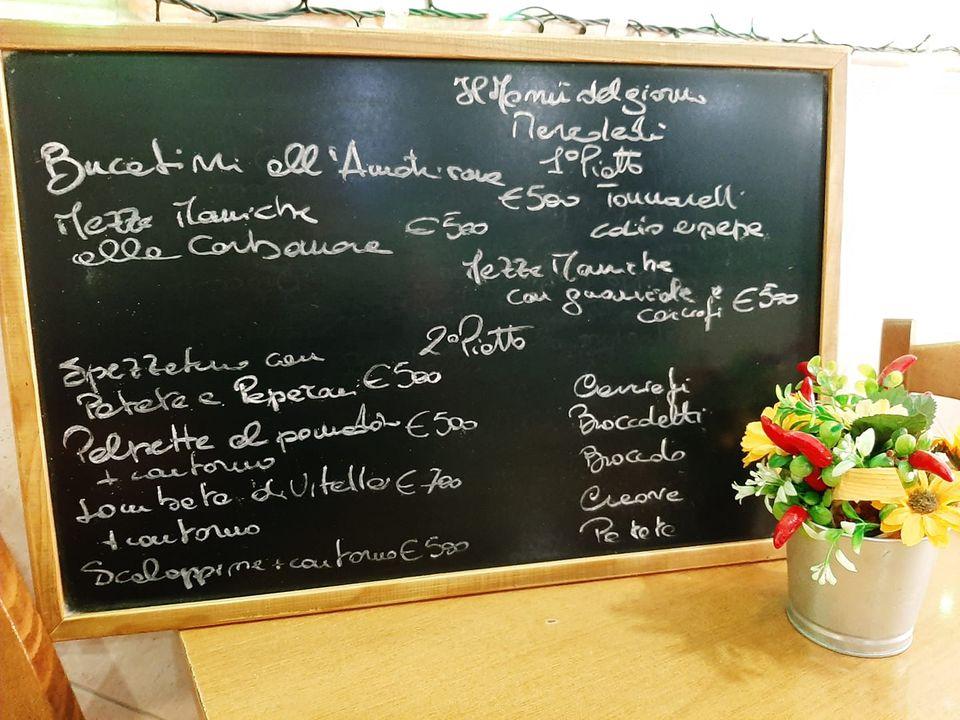 Il Menù del giorno
Mercoledì
1° Piatto
Bucatini all'Amatriciana
€ 500 Tonnarelli
cacio e pepe
Mezze Maniche
alla Carbonara € 500
Mezze Maniche
con guanciale e
carciofi € 500
2° Piatto
Spezzatino con
Patate e Peperoni € 500
Polpette al pomodoro € 500
+ contorno
Lombata di Vitella € 700
+ contorno
Scaloppine + contorno € 500
Carciofi
Broccoletti
Broccolo
Patate